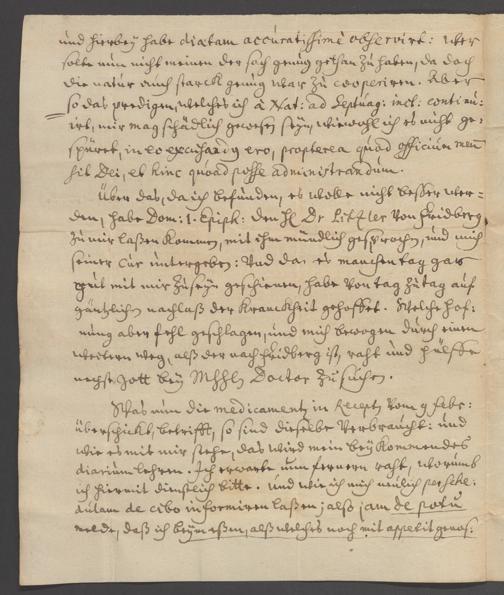 und hierbey habe diætam accuratissimè observirt: Wer
solte nun nicht meinen der sach genug gethan zu haben, da doch
die natur auch starck genug war zu cooperiren. Aber
so das predigen, welches ich à Nat: ad Septuag: incl. continu-
irt, mir mag schädlich gewesen seyn, wiewohl ich es nicht ge-
spüret, in eo excusandus ero, propterea quod officium meum
sit Dei, et hinc quoad posse administrandum.
Über das, da ich befunden, es wolle nicht besser wer-
den, habe Dom: 1. Epiph: den H. Dr von Fridberg
zu mir laßen kommen, mit ihm mündlich gesprochen, und mich
seiner Cur untergeben: Und da es manchen tag gar
gut mit mir zu seyn geschienen, habe von tag zu tag auf
gäntzlichen nachlaß der Kranckheit gehoffet. Welche hof-
nung aber fehl geschlagen, und mich bewogen durch einen
weitern weg, alß der nach Fridberg ist, raht und hülffe
nechst Gott bey Doctor zu suchen.
Was nun die medicamenta in Recepta vom 9 Febr:
überschickt, betrifft, so sind dieselbe verbraucht: und
wie es mit mir stehe, das wird mein beykommendes
diarium lehren. Ich erwarte nun fernern raht, worumb
ich hiermit dienstlich bitte. Und wie ich mich neulich per
de cibo informiren laßen, alß jam de potu
melde, daß ich beym eßen, alß welches noch mit appetit